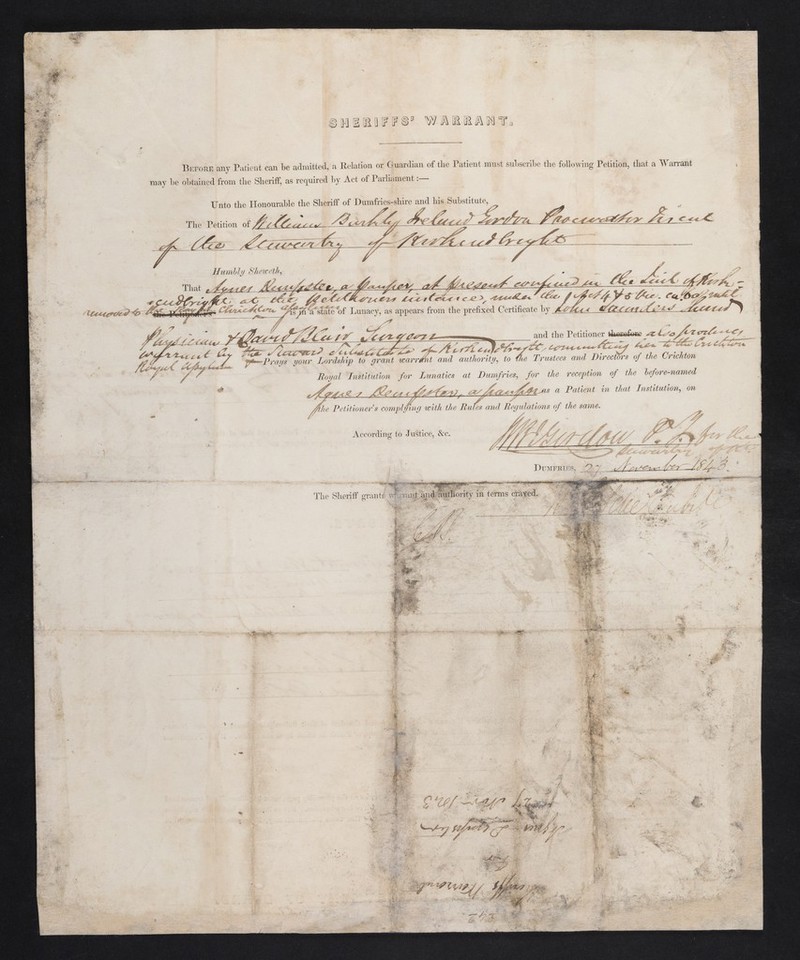 SHERIFFS' WARRANT.
BEFORE any Patient can be admitted, a Relation or Guardian of the Patient must subscribe the following Petition, that a Warrant
may be obtained from the Sheriff, as required by Act of Parliament:—
Unto the Honourable the Sheriff of Dumfries-shire and his Substitute,
The Petition of William Ireland Gordon Procurator Fiscal
of the Stewartry of Kirkcudbright
Humbly Sheweth,
That Agnes Dempster, a pauper, at present confined in the of Kirk-
cudbright at the Petitioners instance, under the
removed to the Crichton is in a state of Lunacy, as appears from the prefixed Certificate by John Saunders
Physician & David Blair Surgeon and the Petitioner therefore also produces
warrant by the Steward Substitute of Kirkcudbright committing her to the Crichton
Royal Asylum Prays your Lordship to grant warrant and authority, to the Trustees and Directors of the Crichton
Royal Institution for Lunatics at Dumfries, for the reception of the before-named
Agnes Dempster, a pauper as a Patient in that Institution, on
the Petitioner's complying with the Rules and Regulations of the same.
According to Justice, &c. Gordon P. F. for the
Stewartry of
DUMFRIES, 27 November 1843.
The Sheriff grants warrant and authority in terms craved.
Sheriffs Warrant
for
Agnes Dempster
27 Nov 1843